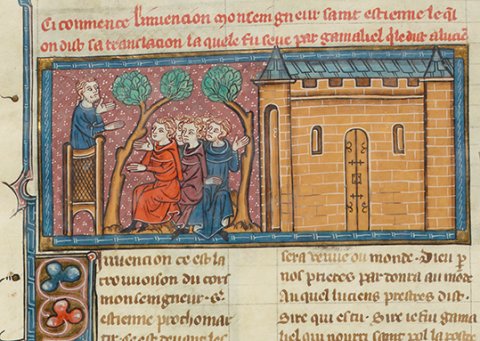 Ci conmence linvencion monseigneur saint estienne le q̃l
on dist sa translacion la quele fu seue par gamaliel q̃ le dist a luciã
Invencion ce est la
trouvoison du cors
monseigneur .s.
estienne prothomar
tir. ce est devant les
sera venue ou monde. Dieu p̲
nos prieres pardonra au mõde
Auquel luciens prestres dist.
Sire qui es tu. Sire ie sui gama
liel qui nourri saint pol la postre